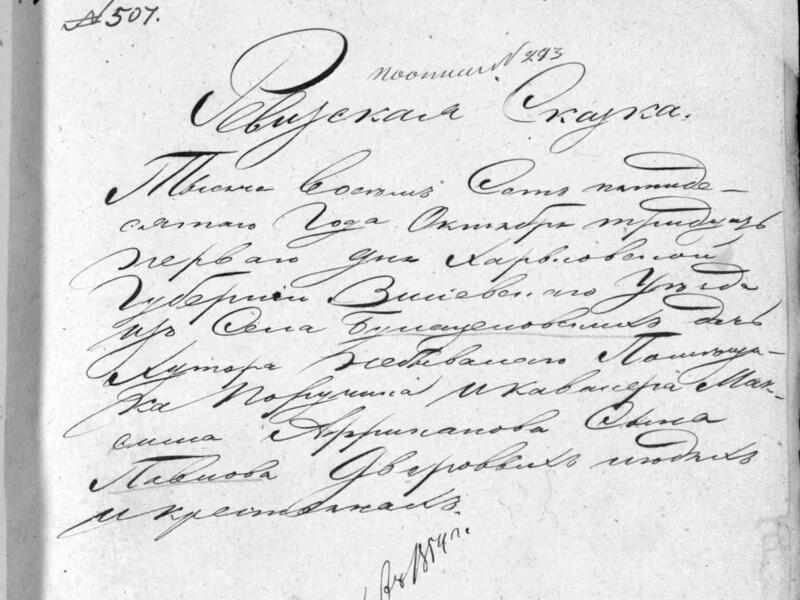 № 507.
по описи № 293
Ревизская Сказка.
Тысяча восемь Сотъ пятиде-
сятаго Года Октября тридцать
перваго дня Харьковской
Губерніи Зміевскаго Уезда
изъ Села дачъ
Хутора Небывалаго Помещи-
ка Поручика и кавалера Мак-
сима Африканова Сына
Павлова Дворовыхъ людяхъ
и крестьянахъ.
1854 г.